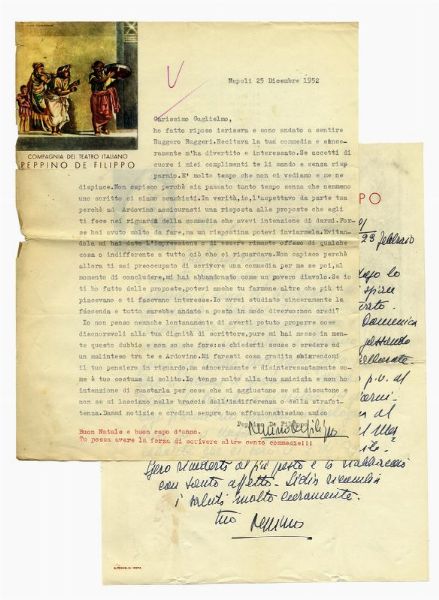 COMPAGNIA DEL TEATRO ITALIANO
PEPPINO DE FILIPPO
Napoli 25 Dicembre 1952
Carissimo Guglielmo,
ho fatto riposo iersera e sono andato a sentire
Ruggero Ruggeri. Recitava la tua commedia e since-
ramente m'ha divertito e interessato. Se accetti di
cuore i miei complimenti te li mando e senza risp
parmio. E' molto tempo che non ci vediamo e me ne
dispiace. Non capisco perchè sia passato tanto tempo senza che nemmeno
uno scritto ci siamo scambiati. In verità, io, l'aspettavo da parte tua
perchè ad Ardovino assicurasti una risposta alle proposte che egli
ti fece nei riguardi della commedia che avevi intenzione di darmi. For-
se hai avuto molto da fare, ma un rispostina potevi inviarmela. Evitan-
dola mi hai dato l'impressione di essere rimasto offeso di qualche
cosa o indifferente a tutto ciò che ti riguardava. Non capisco perchè
allora ti sei preoccupato di scrivere una commedia per me se poi, al
momento di concludere, mi hai abbandonato come un povero diavolo. Se io
ti ho fatto delle proposte, potevi anche tu farmene altre che più ti
piacevano e ti facevano interesse. Io avrei studiato sinceramente la
faccenda e tutto sarebbe andato a posto in modo diverso: non credi?
Io non penso neanche lontanamente di averti potuto proporre cose
disonorevoli alla tua dignità di scrittore, pure mi hai messo in men-
te questo dubbio e non so che farose: chiederti scusa o credere ad
un malinteso tra te e Ardovino. Mi faresti cosa gradita chiarendomi
il tuo pensiero in riguardo, ma sinceramente e disinteressatamente co-
me è tuo costume di solito. Io tengo molto alla tua amicizia e non ho
intenzione di guastarla per cose che si aggiustano se si discutono e
non se si lasciano nelle braccia dell'indifferenza o della strafot-
tenza. Dammi notizie e credimi sempre tuo affezionatissimo amico
Peppino De Filippo
Buon Natale e buon capo d'anno.
Tu possa avere la forza di scrivere altre cento commedie!!!
PO
Domenica
Spero rivederti al più presto e ti riabbraccio
con tanto affetto. Lidia ricambia
i saluti molto caramente.
Tuo Peppino